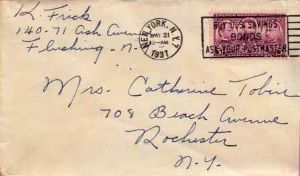 K. Frick
140-71 Ash Avenue
Flushing - N.Y.
NEW YORK, N.Y.
MAY 21
-AM
1937
BUY U.S. SAVINGS
BONDS
ASK YOUR POSTMASTER
Mrs. Catherine
708 Beach Avenue
Rochester
N.Y.